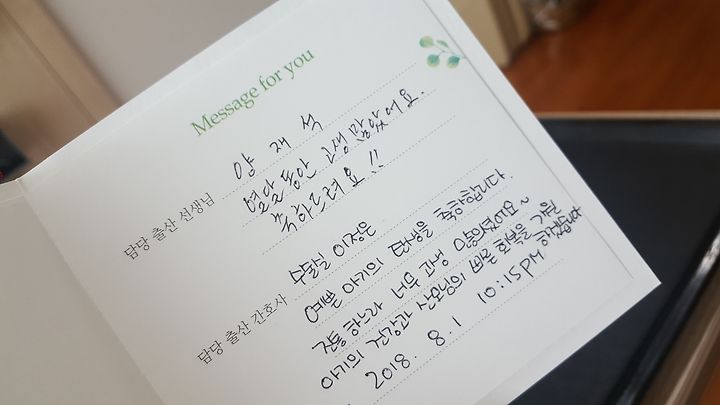 Message for you
담당 출산 선생님 양 재 석
열달동안 고생 많았어요.
축하드려요!!
담당 출산 간호사 수둘님 이정은
예쁜 아기의 탄생을 축하합니다.
진통하느라 너무 고생 많으셨어요~
아기의 건강과 산모님의 빠른 회복을 기원 하겠습니다
2018. 8. 1 10:15pm